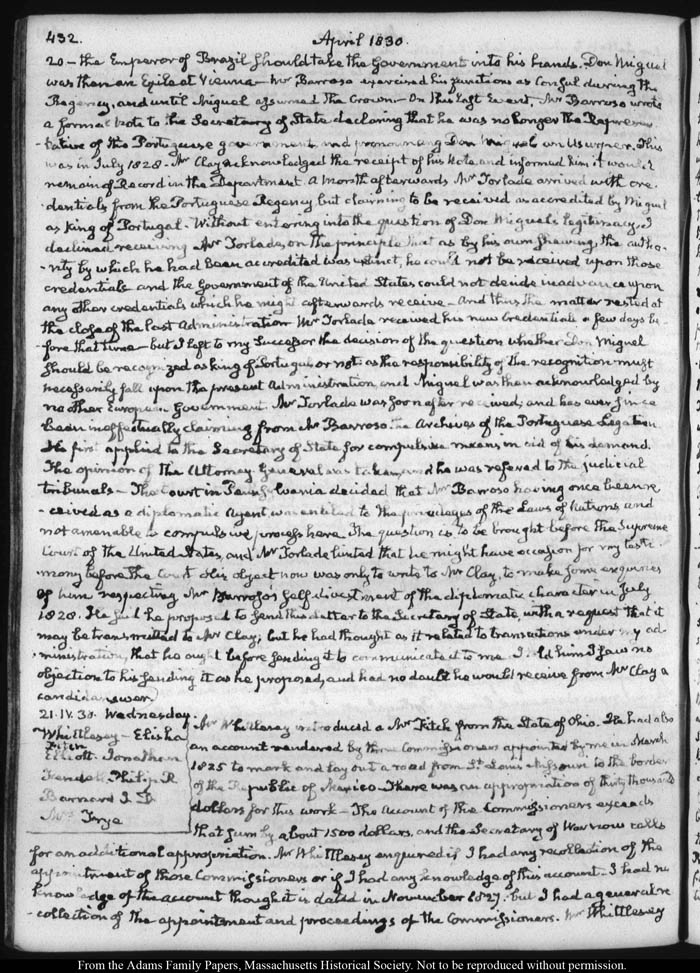 432. April 1830.
20 — the Emperor of Brazil should take the Government into his hands. Don Miguel
was then an Exile at Vienna — Mr Barroso exercised his functions as Consul during the
Regency, and until Miguel assumed the Crown — On this last Event, Mr Barroso wrote
a formal Note to the Secretary of State declaring that he was no longer the Represen-
-tative of the Portuguese government, and pronouncing Don Miguel an Usurper. This
was in July 1828 — Mr Clay acknowledged the receipt of his Note, and informed him it would
remain of Record in the Department. A Month afterwards Mr Torlade arrived with cre-
dentials from the Portuguese Regency but claiming to be received as accredited by Miguel
as King of Portugal — Without entering into the question of Don Miguel's legitimacy, I
declined receiving Mr Torlade, on the principle that as by his own shewing, the autho-
-rity by which he had been accredited was extinct, he could not be received upon those
credentials and the Government of the United States could not decide in advance upon
any other credentials which he might afterwards receive — And thus the matter rested at
the close of the last Administration Mr Torlade received his new Credentials a few days be-
fore that time — but I left to my Successor the decision of the question whether Don Miguel
should be recognized as king of Portugal or not as the responsibility of the recognition must
necessarily fall upon the present Administration, and Miguel was then acknowledged by
no other European Government. Mr Torlade was soon after received; and has ever since
been ineffectually claiming from Mr Barroso the Archives of the Portuguese Legation
He first applied to the Secretary of State for compulsive means in aid of his demand.
The opinion of the Attorney General was taken, and he was refered to the judicial
tribunals — The Court in Pennsylvania decided that Mr Barroso having once been re-
-ceived as a diplomatic Agent, was entitled to the privileges of the Laws of Nations and
not amenable to compulsive process here. The question is to be brought before the Supreme
Court of the United States, and Mr Torlade hinted that he might have occasion for my testi-
mony before the Court. His object now was only to write to Mr Clay, to make some enquiries
of him respecting Mr Barroso's self-divestment of the diplomatic character in July
1828. He said he proposed to send this letter to the Secretary of State, with a request that it
may be transmitted to Mr Clay; but he had thought as it related to transactions under my ad-
-ministration, that he ought before sending it to communicate it to me. I told him I saw no
objection to his sending it as he proposed, and had no doubt he would receive from Mr Clay a
candid answer.
21. IV. 30. Wednesday
Whittlesey — Elisha
Fitch
Elliott. Jonathan
Kendall. Philip R
Barnard I. D
Mrs Frye
Mr Whittlesey introduced a Mr Fitch from the State of Ohio. He had also
an account rendered by three Commissioners appointed by me in March
1825 to mark and lay out a road from St. Louis Missouri to the border
of the Republic of Mexico — There was an appropriation of thirty thousand
dollars for this work — The account of the Commissioners exceeds
that sum by about 1500 dollars, and the Secretary of War now calls
for an additional appropriation. Mr Whittlesey enquired if I had any recollection of the
appointment of those Commissioners or if I had any knowledge of this account. I had no
knowledge of the account though it is dated in November 1827. but I had a general re-
-collection of the appointment and proceedings of the Commissioners. Mr Whittlesey
From the Adams Family Papers, Massachusetts Historical Society. Not to be reproduced without permission.